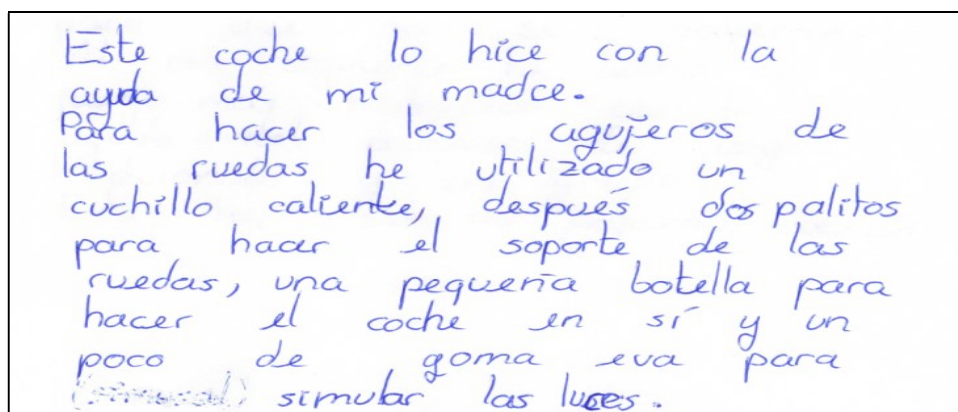 Este coche lo hice con la
ayuda de mi madre.
Para hacer los agujeros de
las ruedas he utilizado un
cuchillo caliente, después dos palitos
para hacer el soporte de las
ruedas, una pequeña botella para
hacer el coche en sí y un
poco de goma eva para
simular las luces.